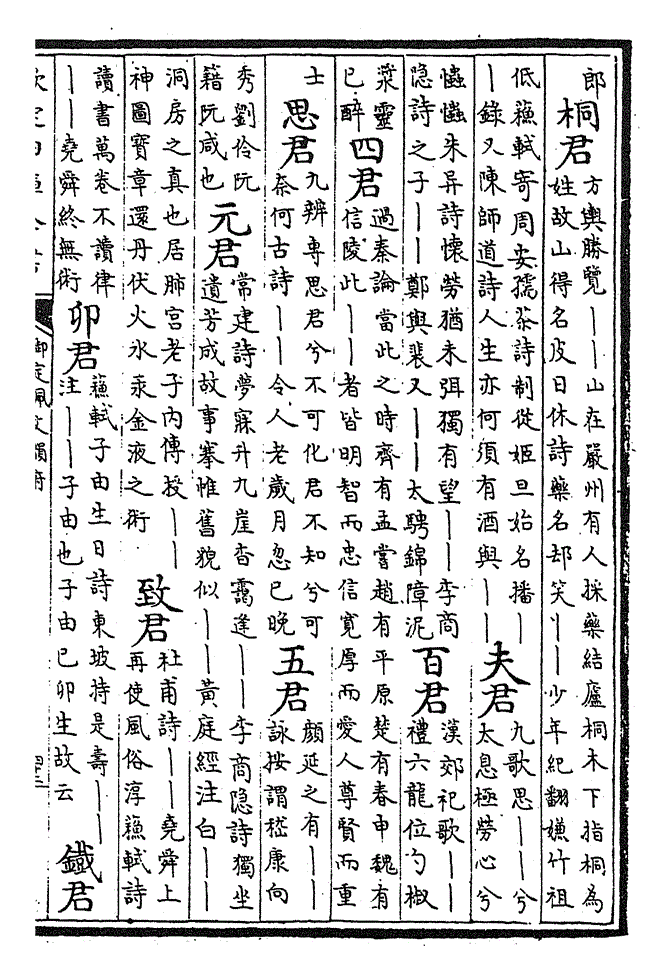 郎
桐君
方輿勝覽——山在嚴州有人採藥結廬桐木下指桐為
姓故山得名皮日休詩藥名却笑——少年紀翻嫌竹祖
低蘇軾寄周安孺茶詩制從姬旦始名播—
—錄又陳師道詩人生亦何須有酒與——
夫君
九歌思——兮
太息極勞心兮
忡忡朱异詩懷勞猶未弭獨有望——李商
隐詩之子——鄭與裴又——太騁錦障泥
百君
漢郊祀歌——
禮六龍位勺椒
漿靈
已醉
四君
過秦論當此之時齊有孟嘗趙有平原楚有春申魏有
信陵此——者皆明智而忠信寬厚而愛人尊賢而重
士
思君
九辨專思君兮不可化君不知兮可
奈何古詩——令人老歲月忽已晚
五君
顔延之有——
詠按謂嵇康向
秀劉伶阮
籍阮咸也
元君
常建詩夢寐升九崖杳靄逢——李商隐詩獨坐
遺芳成故事搴帷舊貌似——黃庭經注白——
洞房之真也居肺宫老子内傳授——
神圖寶章還丹伏火水汞金液之術
致君
杜甫詩——堯舜上
再使風俗淳蘇軾詩
讀書萬卷不讀律
——堯舜終無術
卯君
蘇軾子由生日詩東坡持是壽——
注——子由也子由已卯生故云
鐵君
欽定四庫全書
御定佩文韻府